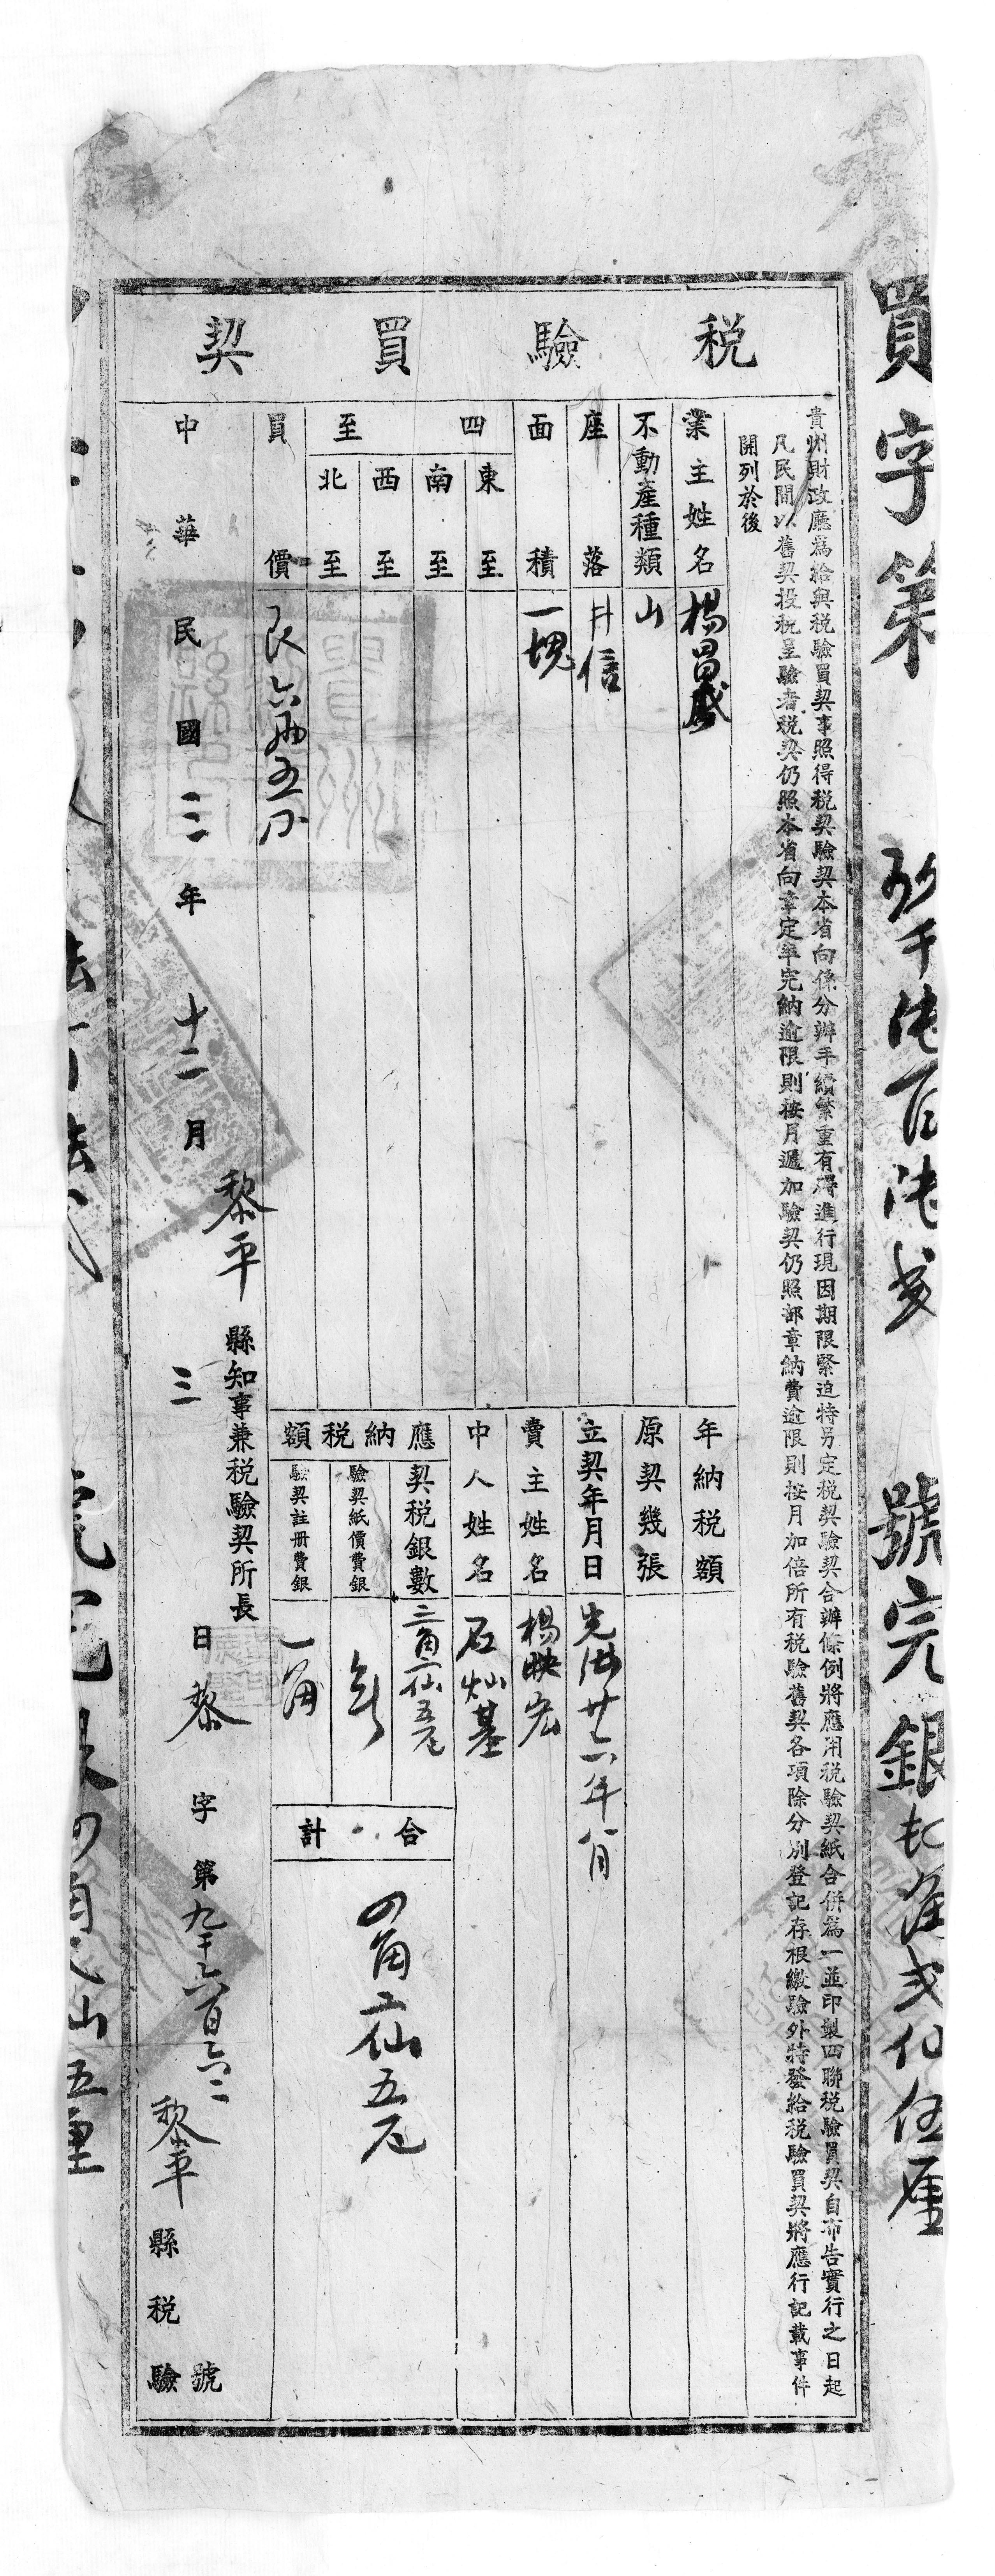 買字第
號完銀
伍厘
税驗買契
貴州財政廳爲給與税驗買契事照得税契驗契本省向係分辦手續繁重有碍進行現因期限緊迫特另定税契驗契合辦條例將應用税驗契紙合併爲一並印製四聯税驗買契自布告實行之日起
凡民間以舊契投税呈驗者税契仍照本省向章定率完納逾限則按月遞加驗契仍照部章納費逾限則按月加倍所有税驗舊契各項除分別登記存根繳驗外特發給税驗買契將應行記載事件
開列於後
業主姓名 楊昌盛
不動產種類 山
座落 井信
面積 一塊
四至
東至
南至
西至
北至
買價 六兩五
年納税額
原契幾張
立契年月日 光緒廿六年八月
賣主姓名 楊映宏
中人姓名 石灿基
應納税額
契税銀數 三角二仙五厘
驗契紙價費銀
驗契註册費銀 一角
合計
四角二仙五厘
黎平縣知事兼税驗契所長
中華民國三年十二月三日黎字第九千六百六二號
黎平縣税驗
五厘